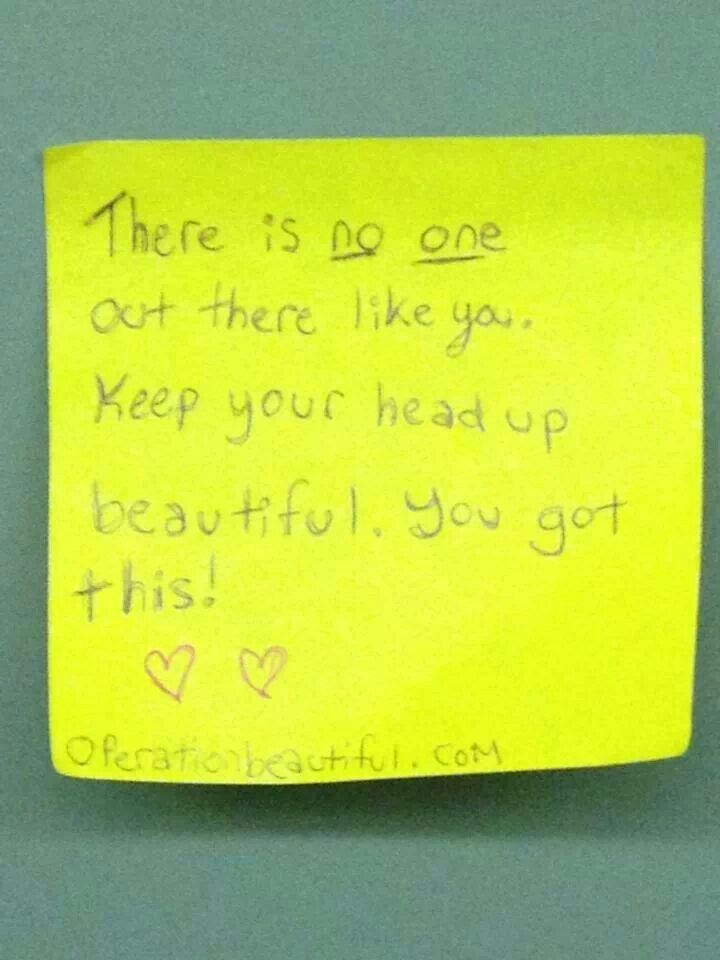 There is no one
out there like you.
Keep your head up
beautiful. You got
this!
Operationbeautiful.com